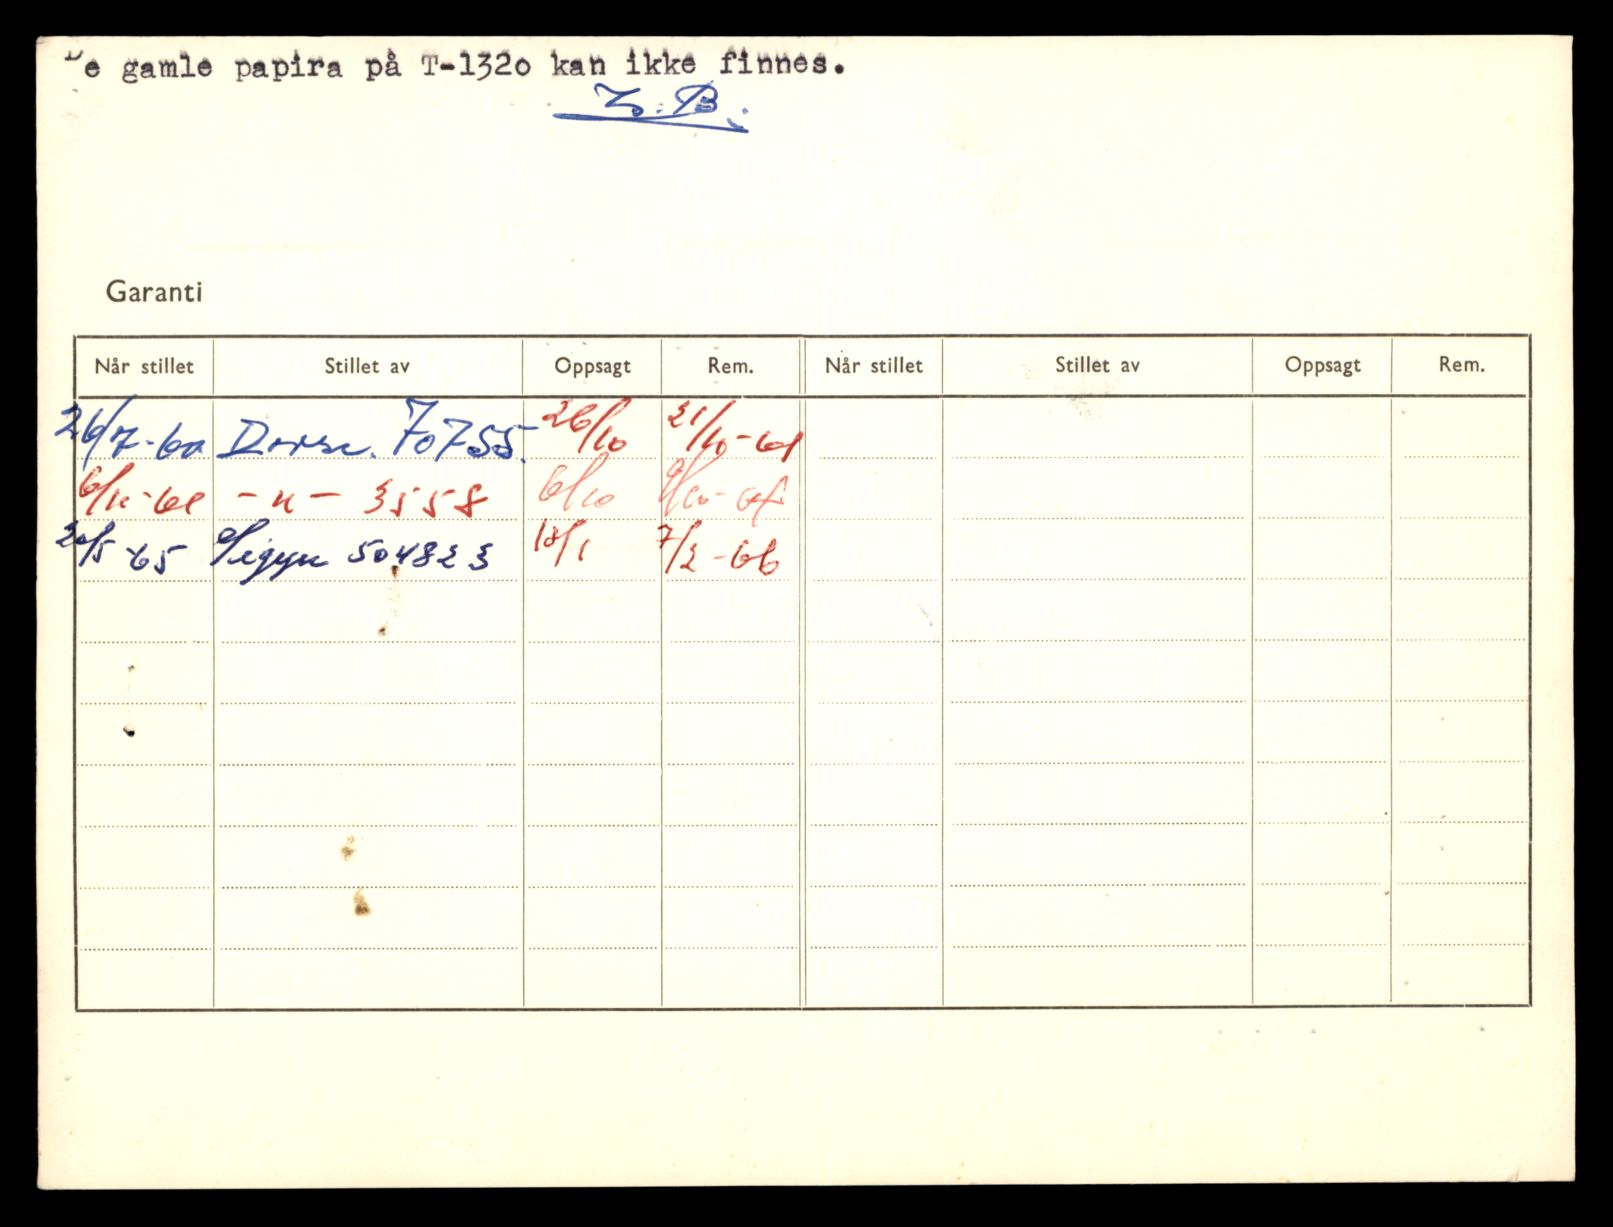 De gamle papira på T-132o kan ikke finnes.
Garanti
Når stillet Stillet av Oppsagt Rem. Når stillet Stillet av Oppsagt Rem.
26/7-60 70755. 26/10 21/10-61
6/11-61 -"- 3558 6/10 9/10-64
20/5-65 Sigyn 504823 18/1 7/2-66